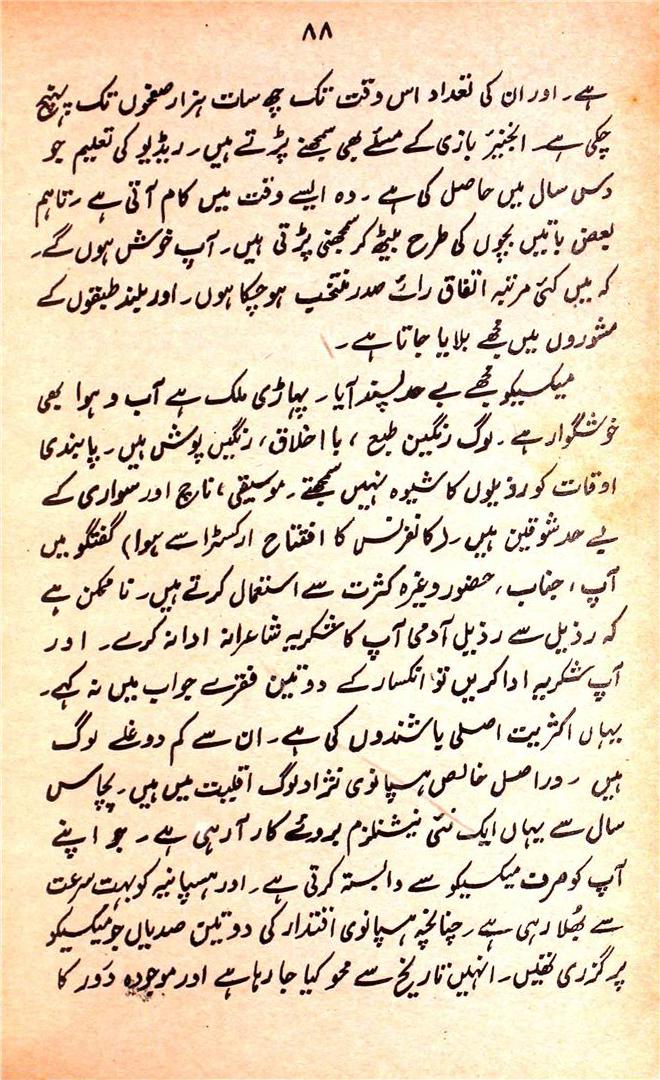 ۸۸
ہے۔ اور ان کی تعداد اس وقت تک چھ سات ہزار صفحوں تک پہنچ
چکی ہے۔ انجنیئر بازی کے مسئلے بھی سمجھنے پڑتے ہیں۔ ریڈیو کی تعلیم جو
دس سال میں حاصل کی ہے۔ وہ ایسے وقت میں کام آتی ہے۔ تاہم
بعض باتیں بچوں کی طرح بیٹھ کر سمجھنی پڑتی ہیں۔ آپ خوش ہوں گے۔
کہ میں کئی مرتبہ اتفاق رائے صدر منتخب ہو چکا ہوں۔ اور بلند طبقوں کے
مشوروں میں مجھے بلایا جاتا ہے۔
میکسیکو مجھے بے حد پسند آیا۔ پہاڑی ملک ہے آب و ہوا بھی
خوشگوار ہے۔ لوگ رنگین طبع، با اخلاق، رنگیں پوش ہیں۔ پابندی
اوقات کو رذیلوں کا شیوہ نہیں سمجھتے۔ موسیقی، ناچ اور سواری کے
بے حد شوقین ہیں۔ (کانفرنس کا افتتاح ارکسٹرا سے ہوا) گفتگو میں
آپ، جناب، حضور وغیرہ کثرت سے استعمال کرتے ہیں۔ نا ممکن ہے
کہ رذیل سے رذیل آدمی آپ کا شکریہ شاعرانہ ادا نہ کرے۔ اور
آپ شکریہ ادا کریں تو انکسار کے دو تین فقرے جواب میں نہ کہے۔
یہاں اکثریت اصلی باشندوں کی ہے۔ ان سے کم دوغلے لوگ
ہیں۔ دراصل خالص ہسپانوی نژاد لوگ اقلیت میں ہیں۔ پچاس
سال سے یہاں ایک نئی نیشنلزم بروئے کار آ رہی ہے۔ جو اپنے
آپ کو صرف میکسیکو سے وابستہ کرتی ہے۔ اور ہسپانیہ کو بہت سرعت
سے بھلا رہی ہے۔ چنانچہ ہسپانوی اقتدار کی دو تین صدیاں جو میکسیکو
پر گزری تھیں۔ انہیں تاریخ سے محو کیا جا رہا ہے اور موجودہ دور کا